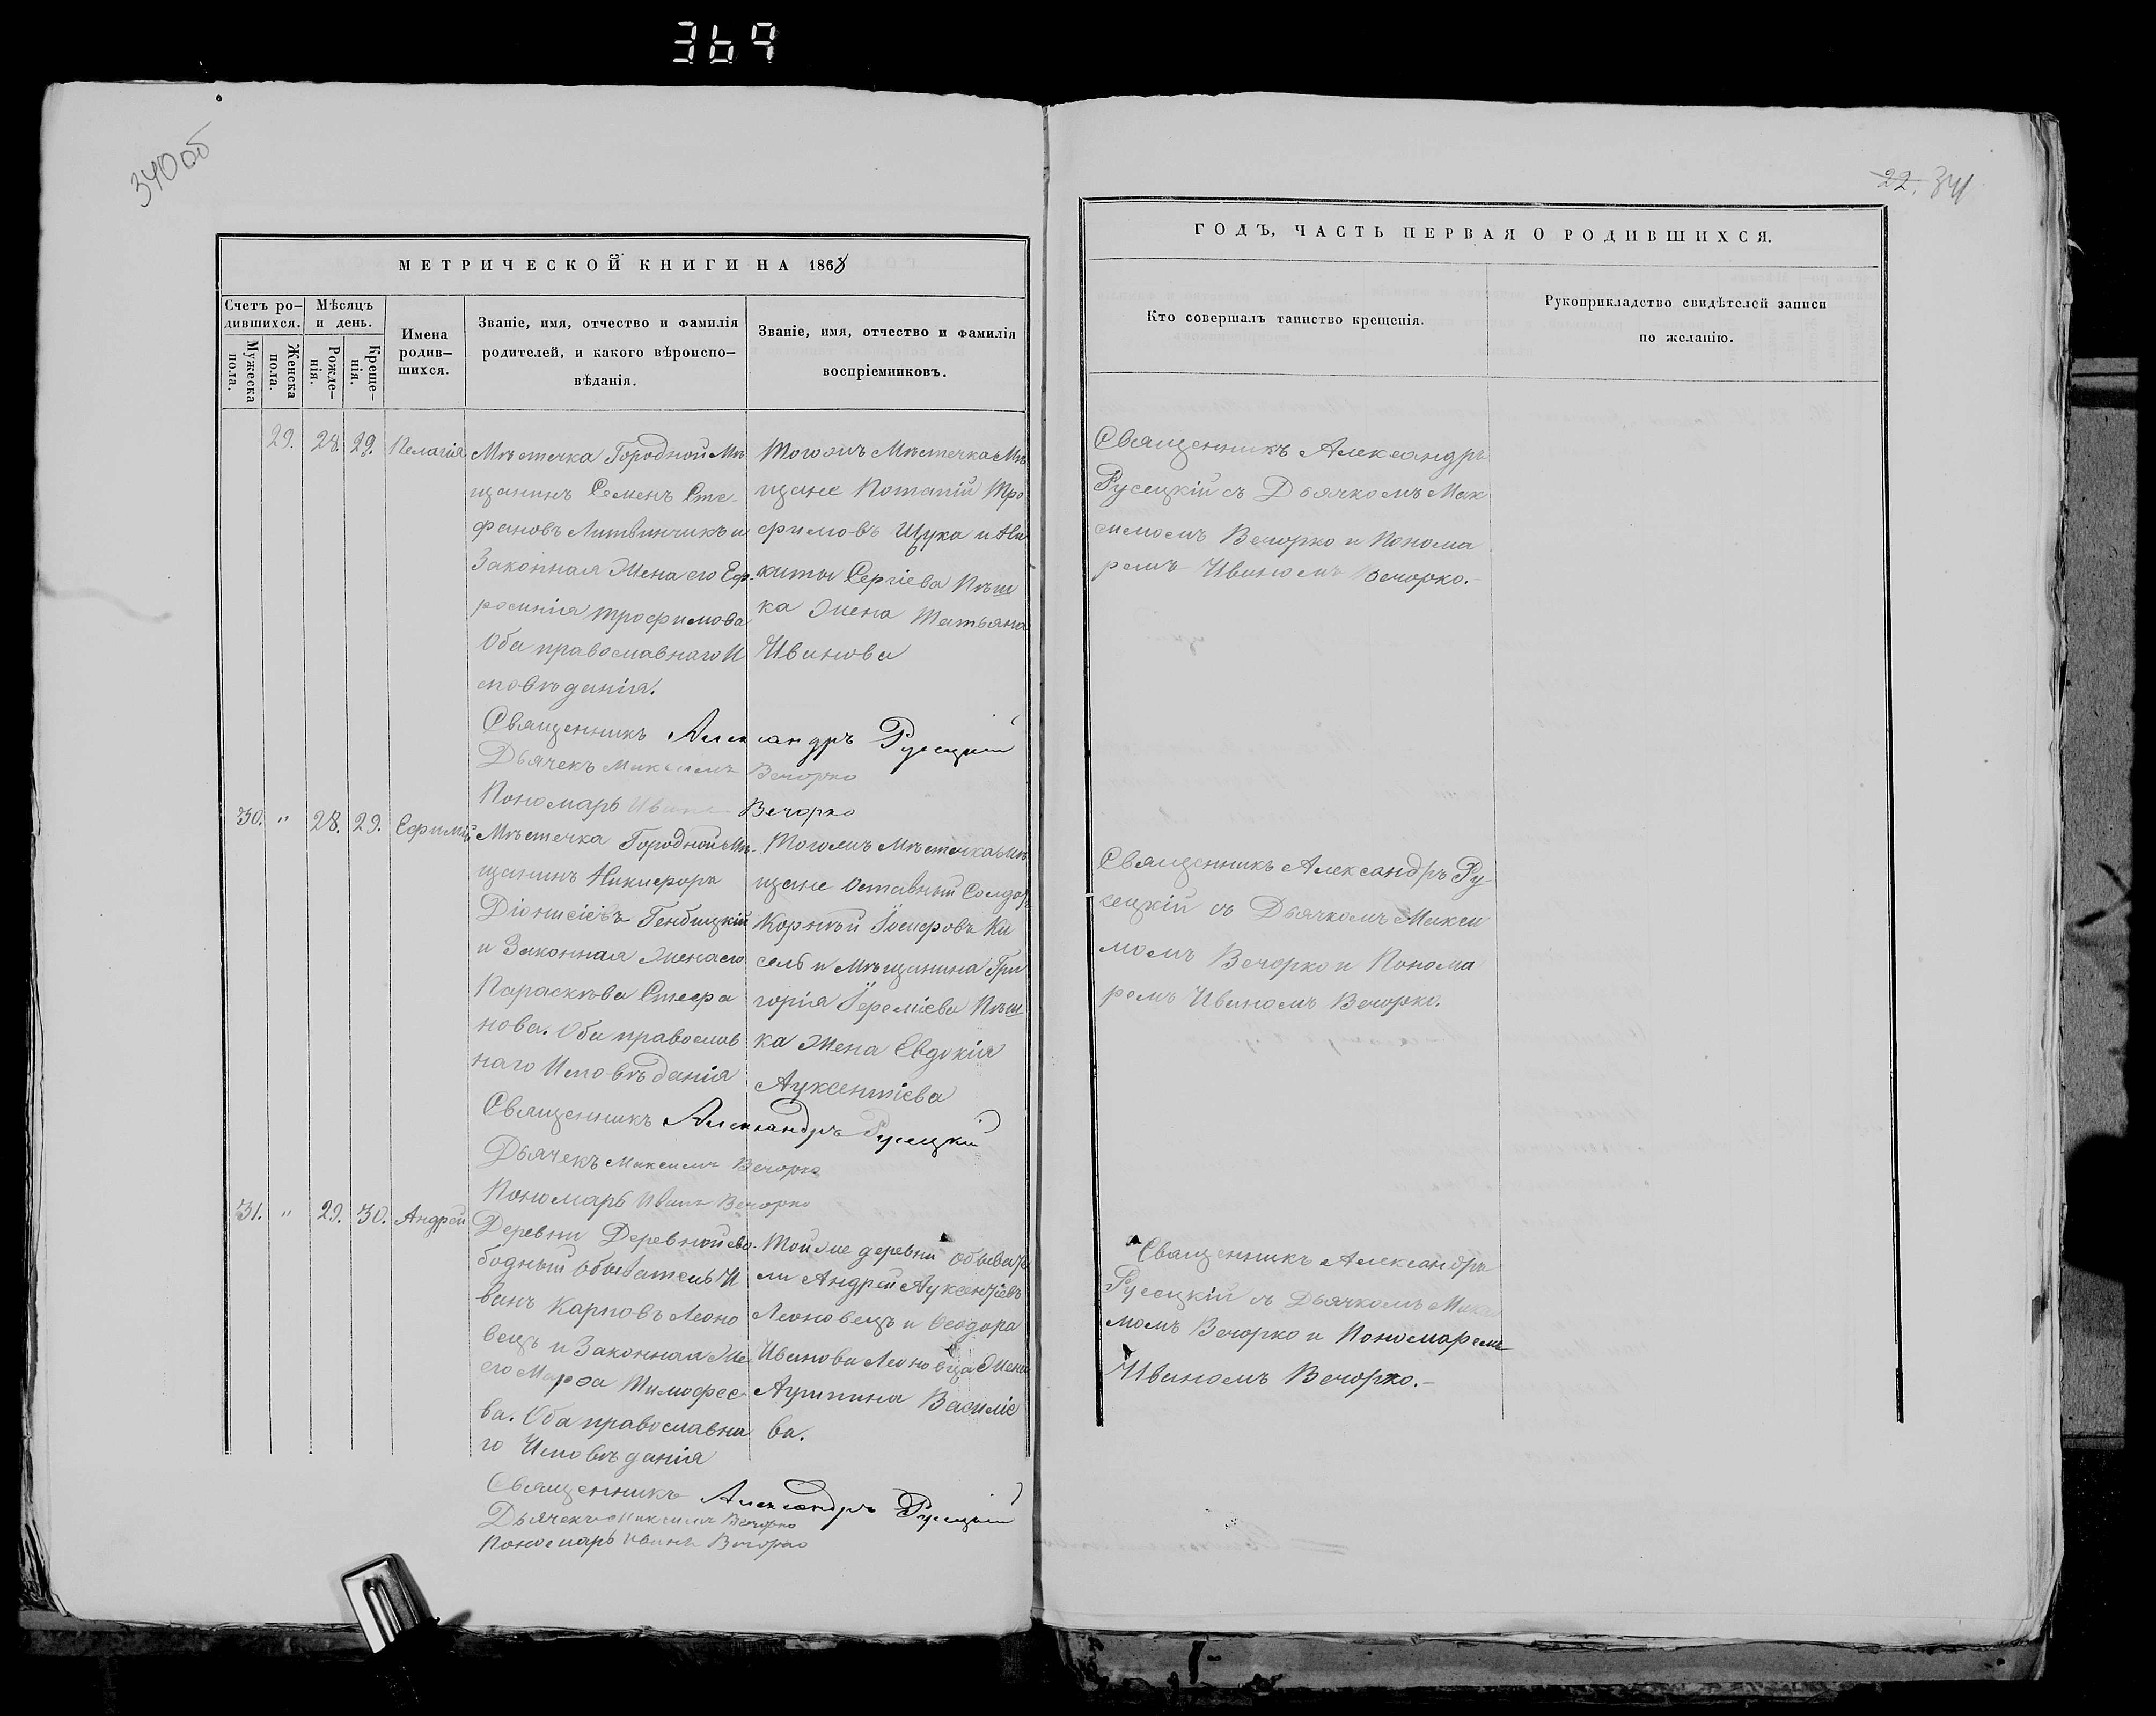 369
340об
22. 341
МЕТРИЧЕСКОЙ КНИГИ НА 1868
Счетъ ро-
дившихся.
Мужеска
пола.
Женска
пола.
Мѣсяцъ
и день.
Рожде-
нія.
Креще-
нія.
Имена
родив-
шихся.
Званіе, имя, отчество и фамилія
родителей, и какого вѣроиспо-
вѣданія.
Званіе, имя, отчество и фамилія
воспріемниковъ.
29. 28. 29. Пелагія
Мѣстечка Городной Мѣ
щанинъ Семенъ Сте-
фановъ Литвинчикъ и
Законная Жена его Еф-
росинія Трофимова
Оба православнаго И
сповѣданія.
Тогожъ Мѣстечка Мѣ
щане Потапій Тро
фимовъ Щука и Ни
киты Сергіева Пѣш
ка жена Татьяна
Иванова
Священникъ Александръ Русецкій
Дьячекъ Максимъ Вечорко
Пономарь Иванъ Вечорко
30. " 28. 29. Ефимій
Мѣстечка Городной Мѣ-
щанинъ Никифоръ
Діонисіевъ Генбицкій
и Законная Жена его
Параскѣва Стефа
нова. Оба православ
наго Исповѣданія
Тогожъ Мѣстечка Мѣ
щане Отставный Солдатъ
Корнѣй Іосифовъ Ки
сель и Мѣщанина Гри
горія Іереміева Пѣш
ка Жена Евдокія
Ауксентіева
Священникъ Александръ Русецкій
Дьячекъ Максимъ Вечорко
Пономарь Иванъ Вечорко
31. " 29. 30. Андрей
Деревни Деревной сво-
бодный Обыватель И
ванъ Карповъ Леоно
вецъ и Законная Же
его Марѳа Тимофее-
ва. Оба православна
го Исповѣданія
Той же деревни обывате
ли Андрей Ауксентіевъ
Леоновецъ и Ѳеодора
Иванова Леоновца Жена
Агрипина Василіе
ва.
Священникъ Александръ Русецкій
Дьячекъ Максимъ Вечорко
Пономарь Иванъ Вечорко
ГОДЪ, ЧАСТЬ ПЕРВАЯ О РОДИВШИХСЯ.
Кто совершалъ таинство крещенія.
Рукоприкладство свидѣтелей записи
по желанію.
Священникъ Александръ
Русецкій съ Дьячкомъ Мак
симомъ Вечорко и Понома
ремъ Иваномъ Вечорко.-
Священникъ Александръ Ру-
сецкій съ Дьячкомъ Макси
момъ Вечорко и Понома
ремъ Иваномъ Вечорко.
Священникъ Александръ
Русецкій съ Дьячкомъ Макси
момъ Вечорко и Пономаремъ
Иваномъ Вечорко.-